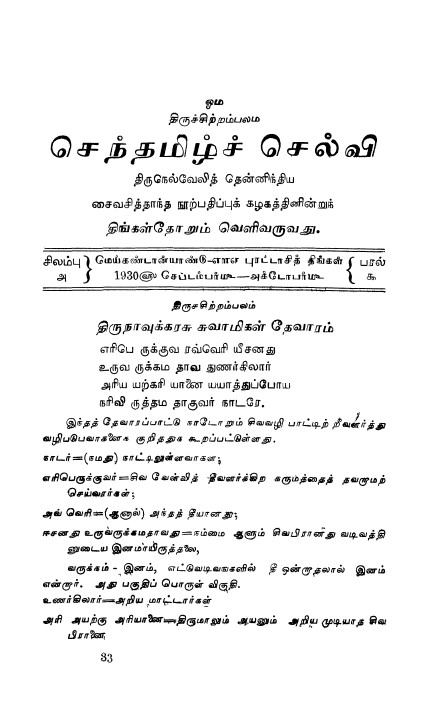 ஓம
திருச்சிற்றம்பலம
செந்தமிழ்ச் செல்வி
திருநெல்வேலித் தென்னிந்திய
சைவசித்தாந்த நூற்பதிப்புக் கழகத்தினின்றுக்
திங்கள்தோறும் வெளிவருவது.
சிலம்பு அ
மெய்கண்டான்யாண்டு-௭௦௭ புரட்டாசித் திங்கள்
1930௵ செப்டம்பர்௴—அக்டோபர்௴
பரல் ௯
திருசசிற்றம்பலம்
திருநாவுக்கரசு சுவாமிகள் தேவாரம்
எரிபெ ருக்குவ ரவ்வெரி யீசனது
உருவ ருக்கம தாவ துணர்கிலார்
அரிய யற்கரி யானை யயாத்துப்போய
நரிவி ருத்தம தாகுவர் நாடரே.
இந்தத் தேவாரப்பாட்டு நாடோறும் சிவவழி பாட்டிற் றீவளர்த்து
வழிபடுபவர்களைக குறித்துக் கூறப்பட்டுள்ளது.
நாடர்=(நமது) நாட்டிலுள்ளவர்கள;
எரிபெருக்குவர்=சிவ வேள்வித் தீவளர்க்கிற கருமத்தைத் தவமுமற்
செய்வார்கள்;
அவ் வெரி=(ஆனால்) அந்தத் தீயானது;
ஈசனது உருவருக்கமதாவது=நம்மை ஆளும் சிவபிரானது வடிவத்தி
னுடைய இனமாயிருத்தலை,
வருக்கம் - இனம், எட்டுவடிவங்களில் தீ ஒன்றாதலால் இனம்
என்றார். அது பகுதிப் பொருள் விகுதி.
உணர்கிலார்=அறிய மாட்டார்கள்
அரி அயற்கு அரியானை=திருமாலும் அயனும் அறிய முடியாத சிவ
பிரானை
33